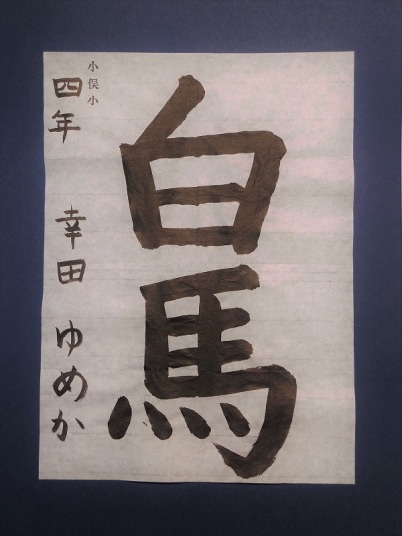 白馬
小俣小
四年 幸田 ゆめか